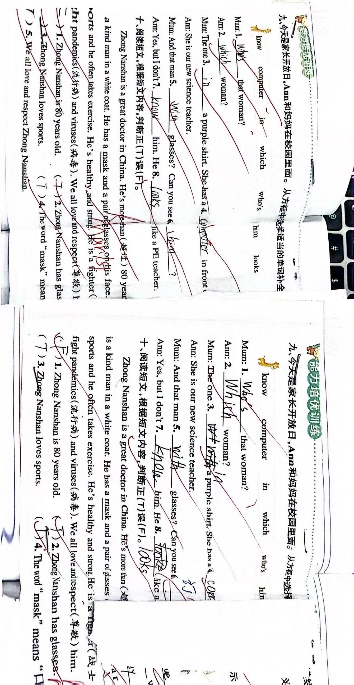 九、今天是家长开放日，Ann和妈妈在校园里面。从方框中选择适当的单词补全
know computer in which who's him looks
Mum: 1. Who's that woman?
Ann: 2. Which woman?
Mum: The one 3. in a purple shirt. She has a 4. computer in front
Ann: She is our new science teacher.
Mum: And that man 5. with glasses? Can you see 6. him?
Ann: Yes, but I don't 7. know him. He 8. looks like a PE teacher.
十、阅读短文，根据短文内容，判断正(T)误(F)。
Zhong Nanshan is a great doctor in China. He's more than 80 year
a kind man in a white coat. He has a mask and a pair of glasses on his face.
sports and he often takes exercise. He's healthy and strong. He is a fighter
fight pandemics(流行病) and viruses(病毒). We all love and respect(尊敬) h
1. Zhong Nanshan is 80 years old. 2. Zhong Nanshan has glas
3. Zhong Nanshan loves sports. (T) 4. The word "mask" mean
(T) 5. We all love and respect Zhong Nanshan.
能力培优训练
九、今天是家长开放日，Ann和妈妈在校园里面。从方框中选择
know computer in which who's him
Mum: 1. Who's that woman?
Ann: 2. Which woman?
Mum: The one 3. in a purple shirt. She has a 4. com
Ann: She is our new science teacher.
Mum: And that man 5. with glasses? Can you see 6.
Ann: Yes, but I don't 7. know him. He 8. like a
十、阅读短文，根据短文内容，判断正(T)误(F)。 looks
Zhong Nanshan is a great doctor in China. He's more than
is a kind man in a white coat. He has a mask and a pair of glasses
sports and he often takes exercise. He's healthy and strong. He is a
fight pandemics(流行病) and viruses(病毒). We all love and respect(尊敬) him.
(F) 1. Zhong Nanshan is 80 years old. 2. Zhong Nanshan has glasses
(T) 3. Zhong Nanshan loves sports. 4. The word "mask" means "口